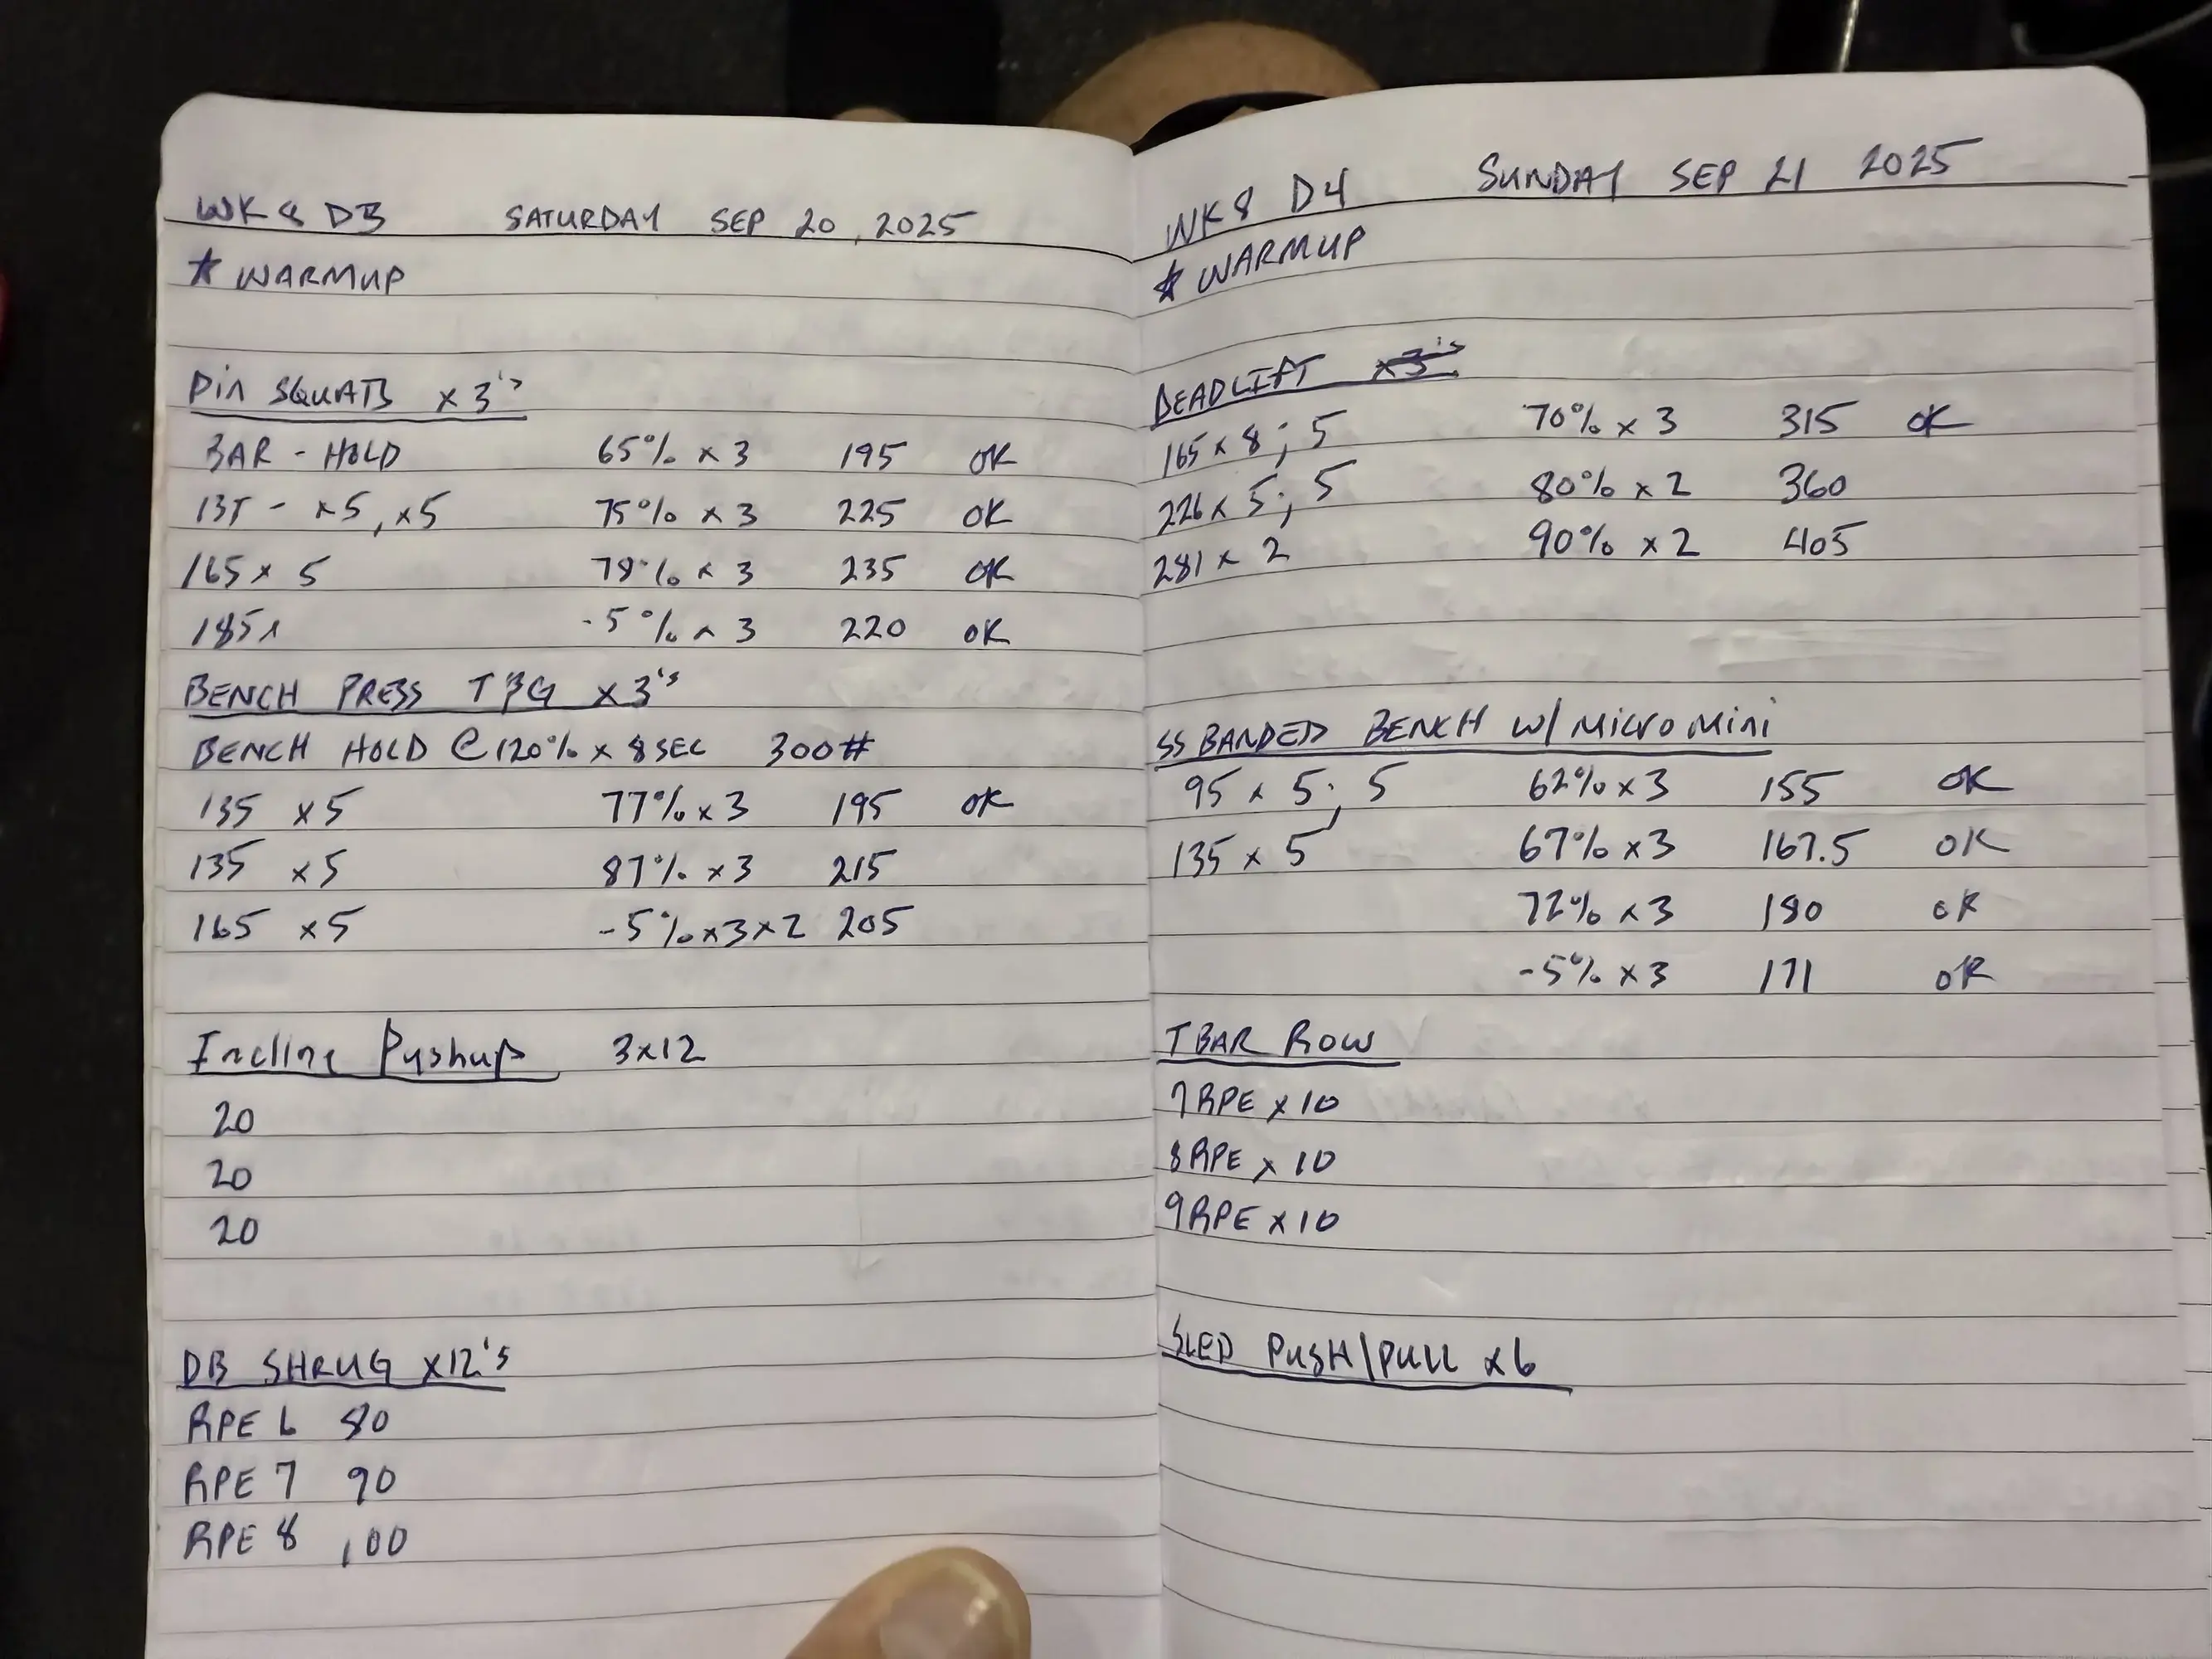 WK 8 D3 SATURDAY SEP 20, 2025
* WARMUP
Pin SQUATS x 3's
BAR - HOLD 65% x 3 195 OK
135 - x5, x5 75% x 3 225 OK
165 x 5 78% x 3 235 OK
185x -5% x 3 220 OK
BENCH PRESS T&G x 3's
BENCH HOLD @ 120% x 8 SEC 300#
135 x5 77% x 3 195 OK
135 x5 87% x 3 215
165 x5 -5% x3x2 205
Incline Pushup 3x12
20
20
20
DB SHRUG x12's
RPE 6 80
RPE 7 90
RPE 8 100
WK 8 D4 SUNDAY SEP 21 2025
* WARMUP
DEADLIFT x3's
165 x 8; 5 70% x 3 315 OK
226 x 5; 5 80% x 2 360
281 x 2 90% x 2 405
SS BANDED BENCH W/ Micro Mini
95 x 5; 5 62% x 3 155 OK
135 x 5 67% x 3 167.5 OK
72% x 3 180 OK
-5% x 3 171 OK
T BAR ROW
7 RPE x 10
8 RPE x 10
9 RPE x 10
SLED PUSH/PULL x6